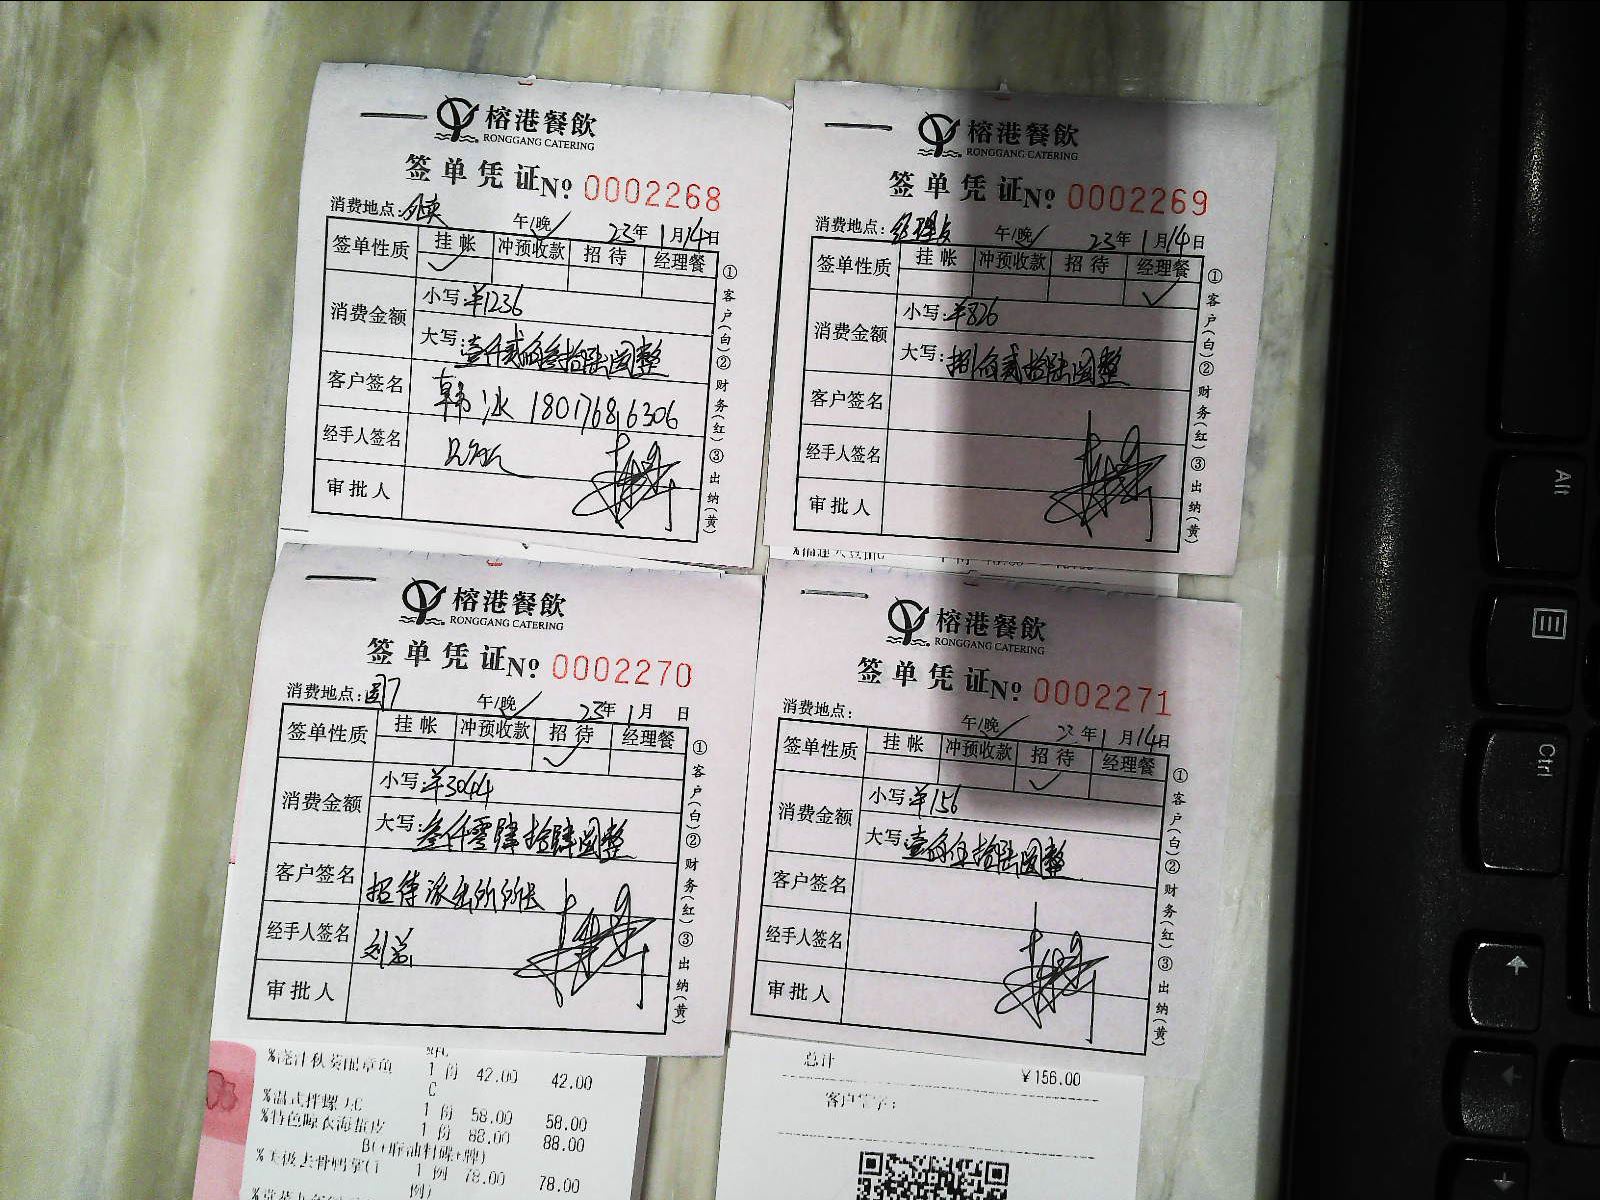 榕港餐飲
RONGGANG CATERING
签单凭证 No 0002268
消费地点：
午/晚 23年1月14日
签单性质 挂帐 冲预收款 招待 经理餐
消费金额 小写:¥1236
大写:壹仟贰佰叁拾陆圆整
客户签名 韩冰 18017686306
经手人签名
审批人
①客户(白)②财务(红)③出纳(黄)
榕港餐飲
RONGGANG CATERING
签单凭证 No 0002269
消费地点：经理
午/晚 23年1月14日
签单性质 挂帐 冲预收款 招待 经理餐
消费金额 小写:¥826
大写:捌佰贰拾陆圆整
客户签名
经手人签名
审批人
①客户(白)②财务(红)③出纳(黄)
榕港餐飲
RONGGANG CATERING
签单凭证 No 0002270
消费地点：
午/晚 23年1月 日
签单性质 挂帐 冲预收款 招待 经理餐
消费金额 小写:¥3044
大写:叁仟零肆拾肆圆整
客户签名 招待派出所所长
经手人签名 刘总
审批人
①客户(白)②财务(红)③出纳(黄)
榕港餐飲
RONGGANG CATERING
签单凭证 No 0002271
消费地点：
午/晚 年1月14日
签单性质 挂帐 冲预收款 招待 经理餐
消费金额 小写:¥156
大写:壹佰伍拾陆圆整
客户签名
经手人签名
审批人
①客户(白)②财务(红)③出纳(黄)
1份 42.00 42.00
C
1份 58.00 58.00
1份 88.00 88.00
1例 78.00 78.00
例)
总计 ¥156.00
客户签字：
Alt
Ctrl